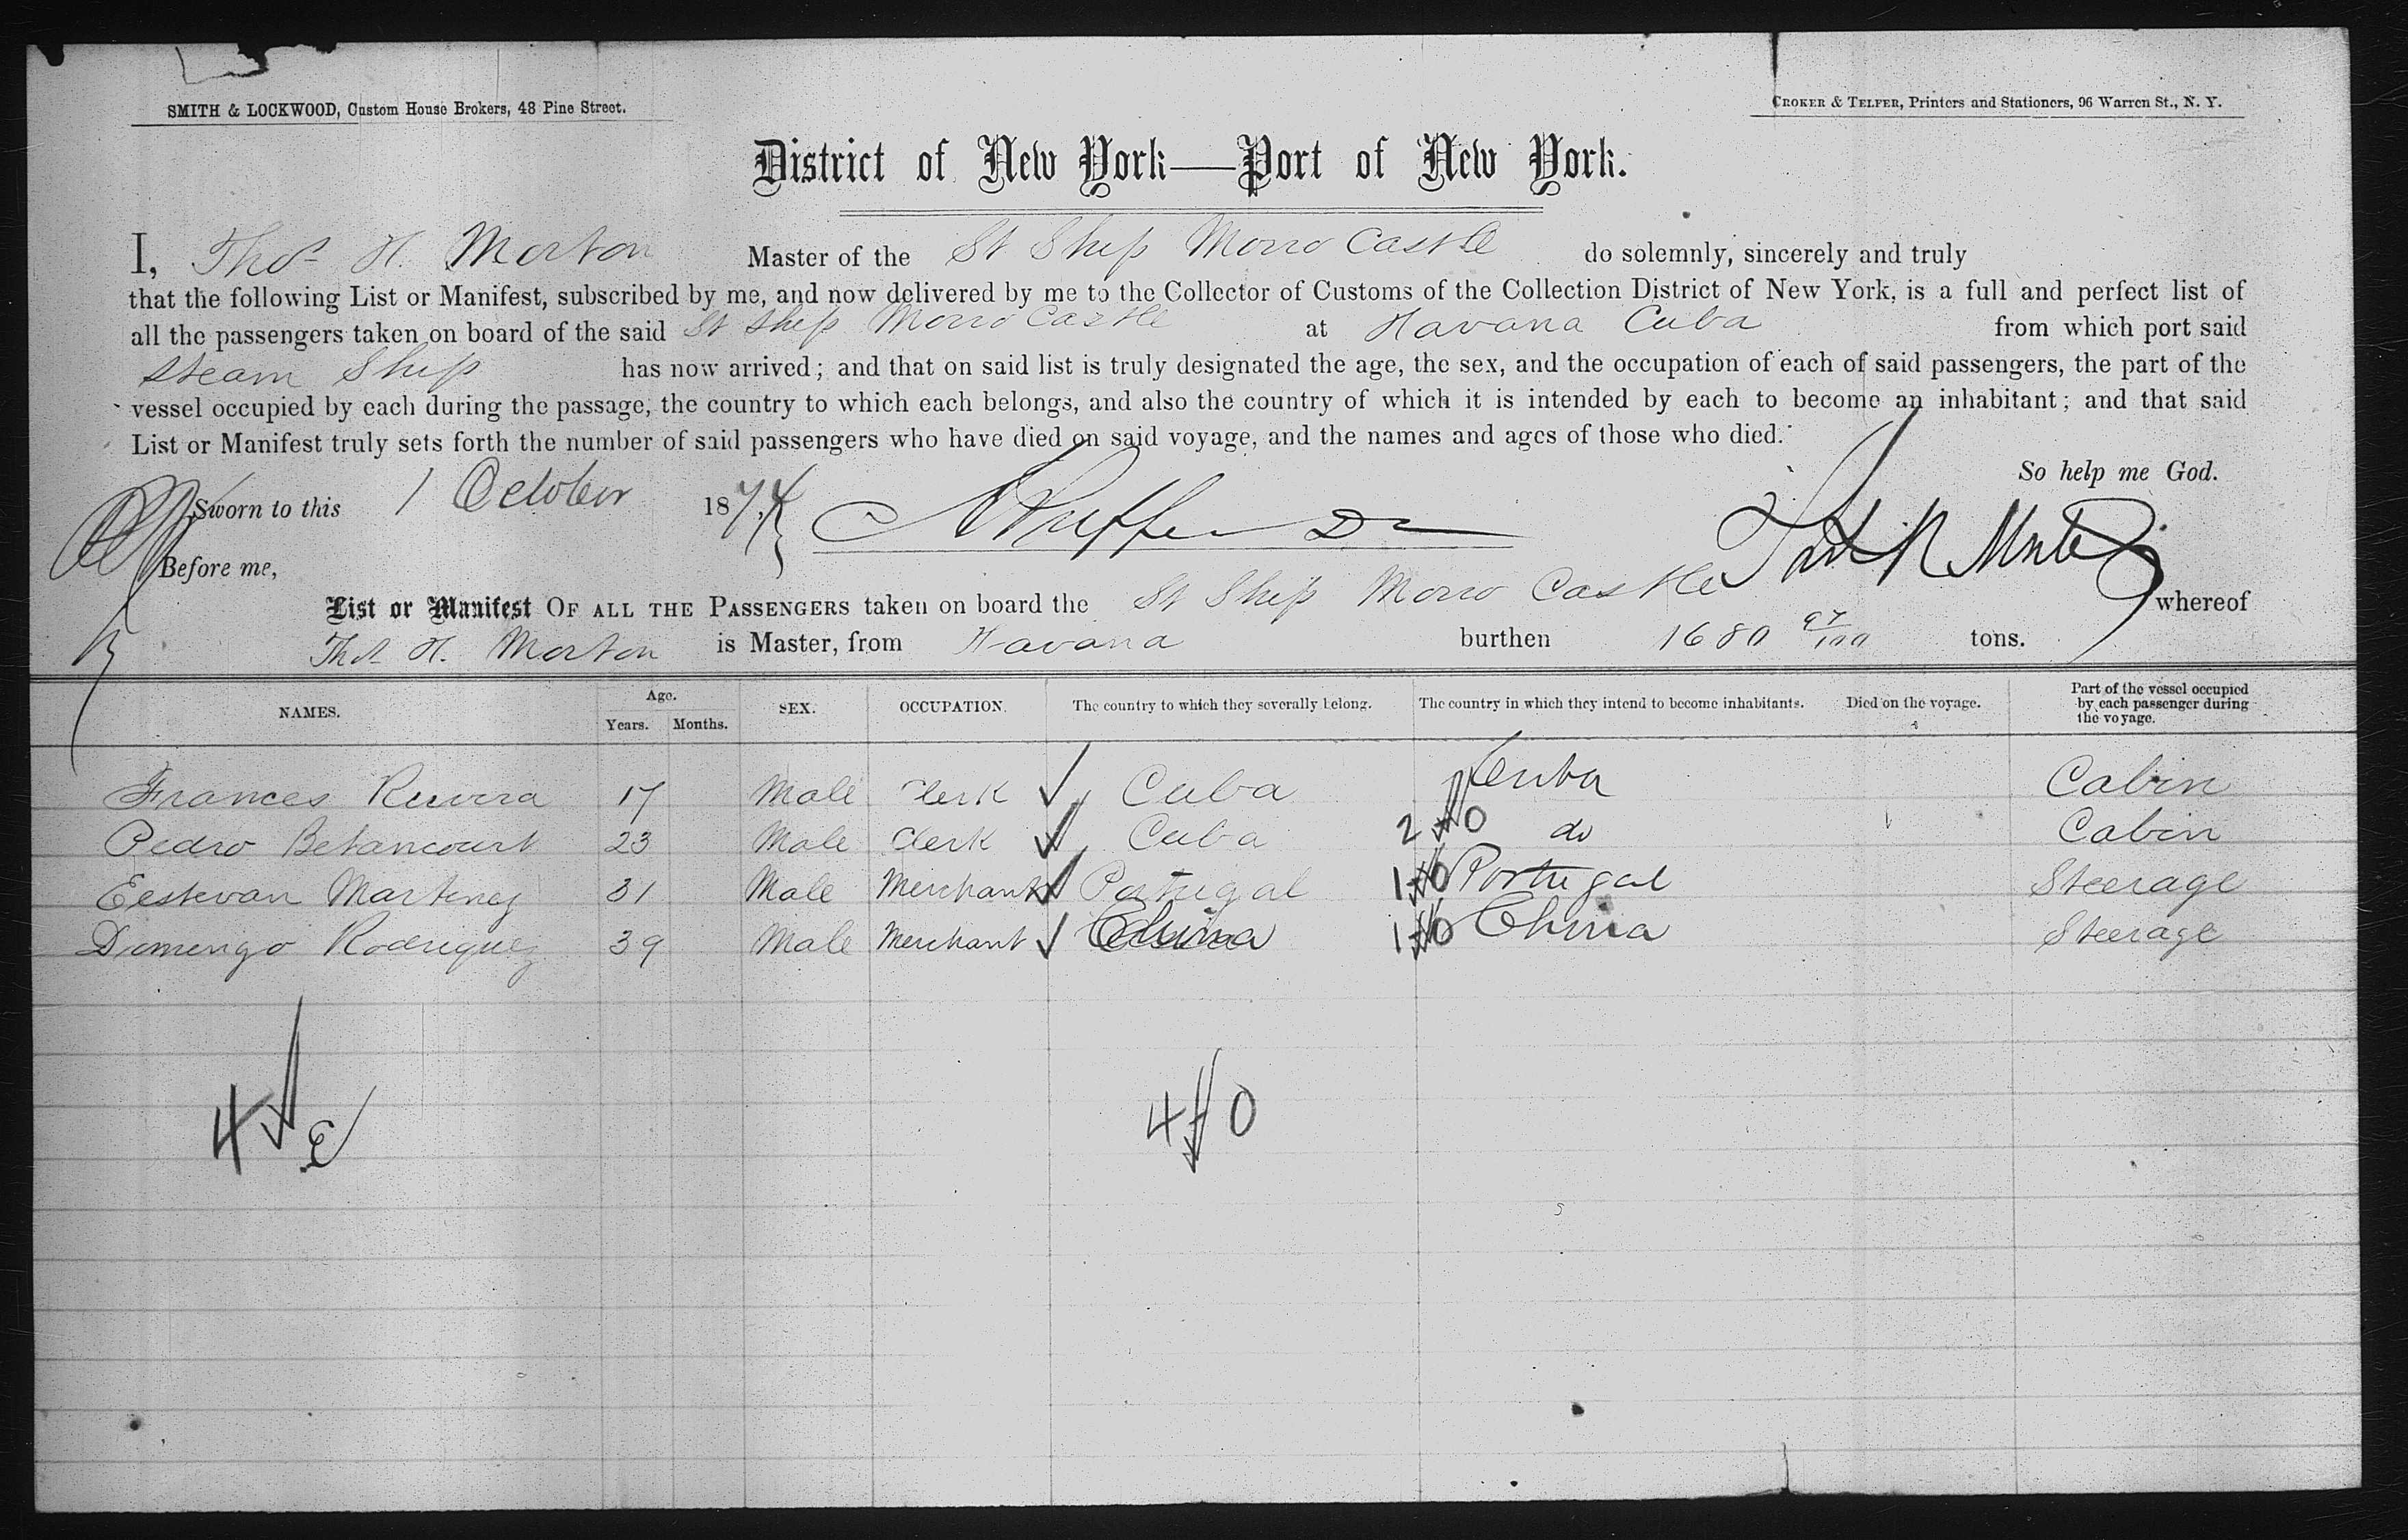 SMITH & LOCKWOOD, Custom House Brokers, 48 Pine Street.
CROKER & TELFER, Printers and Stationers, 96 Warren St., N. Y.
District of New York—Port of New York.
I, Thos H. Morton Master of the St Ship Morro Castle do solemnly, sincerely and truly
that the following List or Manifest, subscribed by me, and now delivered by me to the Collector of Customs of the Collection District of New York, is a full and perfect list of
all the passengers taken on board of the said St Ship Morro Castle at Havana Cuba from which port said
Steam Ship has now arrived; and that on said list is truly designated the age, the sex, and the occupation of each of said passengers, the part of the
vessel occupied by each during the passage, the country to which each belongs, and also the country of which it is intended by each to become an inhabitant; and that said
List or Manifest truly sets forth the number of said passengers who have died on said voyage, and the names and ages of those who died.
So help me God.
Sworn to this 1 October 187
Before me,
List or Manifest OF ALL THE PASSENGERS taken on board the St Ship Morro Castle whereof
Thos H. Morton is Master, from Havana burthen 1680 97/100 tons.
NAMES. Age. Years. Months. SEX. OCCUPATION. The country to which they severally belong. The country in which they intend to become inhabitants. Died on the voyage. Part of the vessel occupied by each passenger during the voyage.
Frances Ruvira 17 Male Clerk Cuba Cuba Cabin
Pedro Betancourt 23 Male Clerk Cuba 2 0 do Cabin
Eestevan Martinez 31 Male Merchant Portugal 1 0 Portugal Steerage
Domengo Rodriquez 39 Male Merchant China 1 0 China Steerage
4
4 0